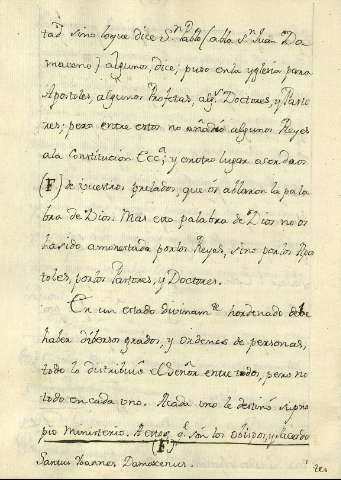 tad sino loque dice Sn. Pablo (abla Sn. Juan Da-
maceno) algunos, dice, puso en la yglesia para
Apostoles, algunos Profetas, algs. Doctores, y Pasto
res; pero entre estos no añadió algunos Reyes
ala Constitucion Ecca. y en otro lugar
(F) de vuestros prelados, que os ablaron la pala
bra de Dios. Mas esta palabra de Dios no os
ha sido amonestada por los Reyes, sino por los Apos
toles, por los Pastores, y Doctores.
En un estado divinamte. hordenado debe
haber diversos grados, y ordenes de personas,
todo lo distribuió el Señor entre todos, pero no
todo en cada uno. Acada uno le destinó su pro
pio ministerio. A estos q. son los
(F)
Santus Ioannes Damacenus.